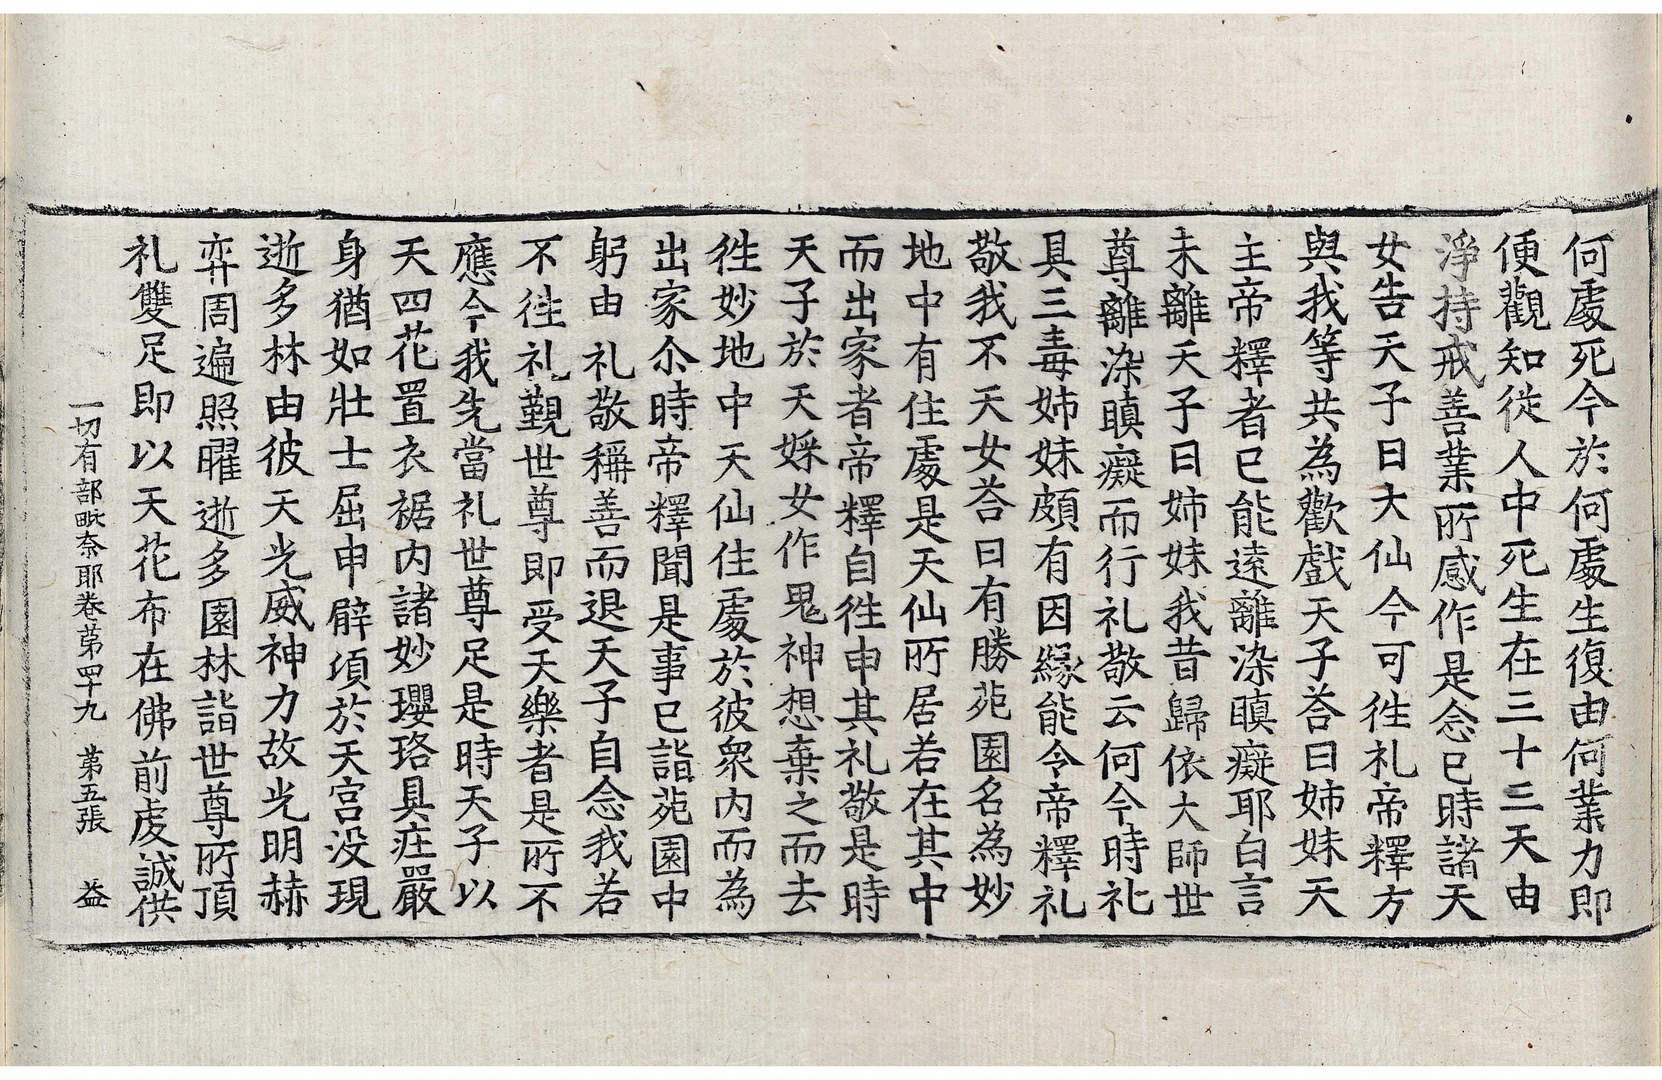 何處死今於何處生復由何業力即
便觀知從人中死生在三十三天由
淨持戒善業所感作是念已時諸天
女告天子曰大仙今可往礼帝釋方
與我等共為歡戲天子荅曰姉妹天
主帝釋者已能遠離染瞋癡耶白言
未離天子曰姉妹我昔歸依大師世
尊離染瞋癡而行礼敬云何今時礼
具三毒姉妹頗有因緣能令帝釋礼
敬我不天女荅曰有勝苑園名為妙
地中有住處是天仙所居若在其中
而出家者帝釋自往申其礼敬是時
天子於天婇女作鬼神想棄之而去
往妙地中天仙住處於彼衆內而為
出家尒時帝釋聞是事已詣苑園中
躬由礼敬稱善而退天子自念我若
不往礼觐世尊即受天樂者是所不
應今我先當礼世尊足是時天子以
天四花置衣裾內諸妙瓔珞具庄嚴
身猶如壯士屈申臂頃於天宮没現
逝多林由彼天光威神力故光明赫
弈周遍照曜逝多園林詣世尊所頂
礼雙足即以天花布在佛前虔誠供
一切有部毗奈耶卷苐四十九 第五張 益